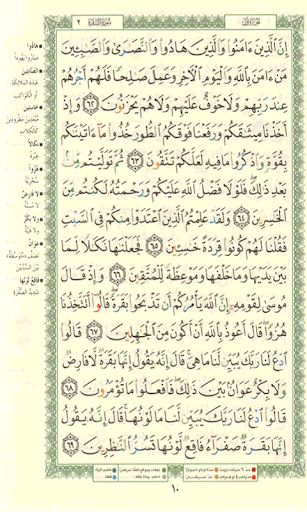 الجزء الأول
سورة البقرة ٢
إِنَّ ٱلَّذِينَ ءَامَنُوا۟ وَٱلَّذِينَ هَادُوا۟ وَٱلنَّصَٰرَىٰ وَٱلصَّٰبِـِٔينَ
مَنْ ءَامَنَ بِٱللَّهِ وَٱلْيَوْمِ ٱلْءَاخِرِ وَعَمِلَ صَٰلِحًا فَلَهُمْ أَجْرُهُمْ
عِندَ رَبِّهِمْ وَلَا خَوْفٌ عَلَيْهِمْ وَلَا هُمْ يَحْزَنُونَ ٦٢ وَإِذْ
أَخَذْنَا مِيثَٰقَكُمْ وَرَفَعْنَا فَوْقَكُمُ ٱلطُّورَ خُذُوا۟ مَآ ءَاتَيْنَٰكُم
بِقُوَّةٍ وَٱذْكُرُوا۟ مَا فِيهِ لَعَلَّكُمْ تَتَّقُونَ ٦٣ ثُمَّ تَوَلَّيْتُم مِّنۢ
بَعْدِ ذَٰلِكَ فَلَوْلَا فَضْلُ ٱللَّهِ عَلَيْكُمْ وَرَحْمَتُهُۥ لَكُنتُم مِّنَ
ٱلْخَٰسِرِينَ ٦٤ وَلَقَدْ عَلِمْتُمُ ٱلَّذِينَ ٱعْتَدَوْا۟ مِنكُمْ فِى ٱلسَّبْتِ
فَقُلْنَا لَهُمْ كُونُوا۟ قِرَدَةً خَٰسِـِٔينَ ٦٥ فَجَعَلْنَٰهَا نَكَٰلًا لِّمَا
بَيْنَ يَدَيْهَا وَمَا خَلْفَهَا وَمَوْعِظَةً لِّلْمُتَّقِينَ ٦٦ وَإِذْ قَالَ
مُوسَىٰ لِقَوْمِهِۦٓ إِنَّ ٱللَّهَ يَأْمُرُكُمْ أَن تَذْبَحُوا۟ بَقَرَةً قَالُوٓا۟ أَتَتَّخِذُنَا
هُزُوًا قَالَ أَعُوذُ بِٱللَّهِ أَنْ أَكُونَ مِنَ ٱلْجَٰهِلِينَ ٦٧ قَالُوا۟
ٱدْعُ لَنَا رَبَّكَ يُبَيِّن لَّنَا مَا هِىَ قَالَ إِنَّهُۥ يَقُولُ إِنَّهَا بَقَرَةٌ لَّا فَارِضٌ
وَلَا بِكْرٌ عَوَانٌۢ بَيْنَ ذَٰلِكَ فَٱفْعَلُوا۟ مَا تُؤْمَرُونَ ٦٨
قَالُوا۟ ٱدْعُ لَنَا رَبَّكَ يُبَيِّن لَّنَا مَا لَوْنُهَا قَالَ إِنَّهُۥ يَقُولُ
إِنَّهَا بَقَرَةٌ صَفْرَآءُ فَاقِعٌ لَّوْنُهَا تَسُرُّ ٱلنَّٰظِرِينَ ٦٩
هادوا
صاروا يهودا
الصابئين
خاسئين
نكالا
عبرة
هزوا
سخرية
لا فارض
لا مسنة
ولا بكر
عوان
فاقع لونها
شديد الصفرة
١٠